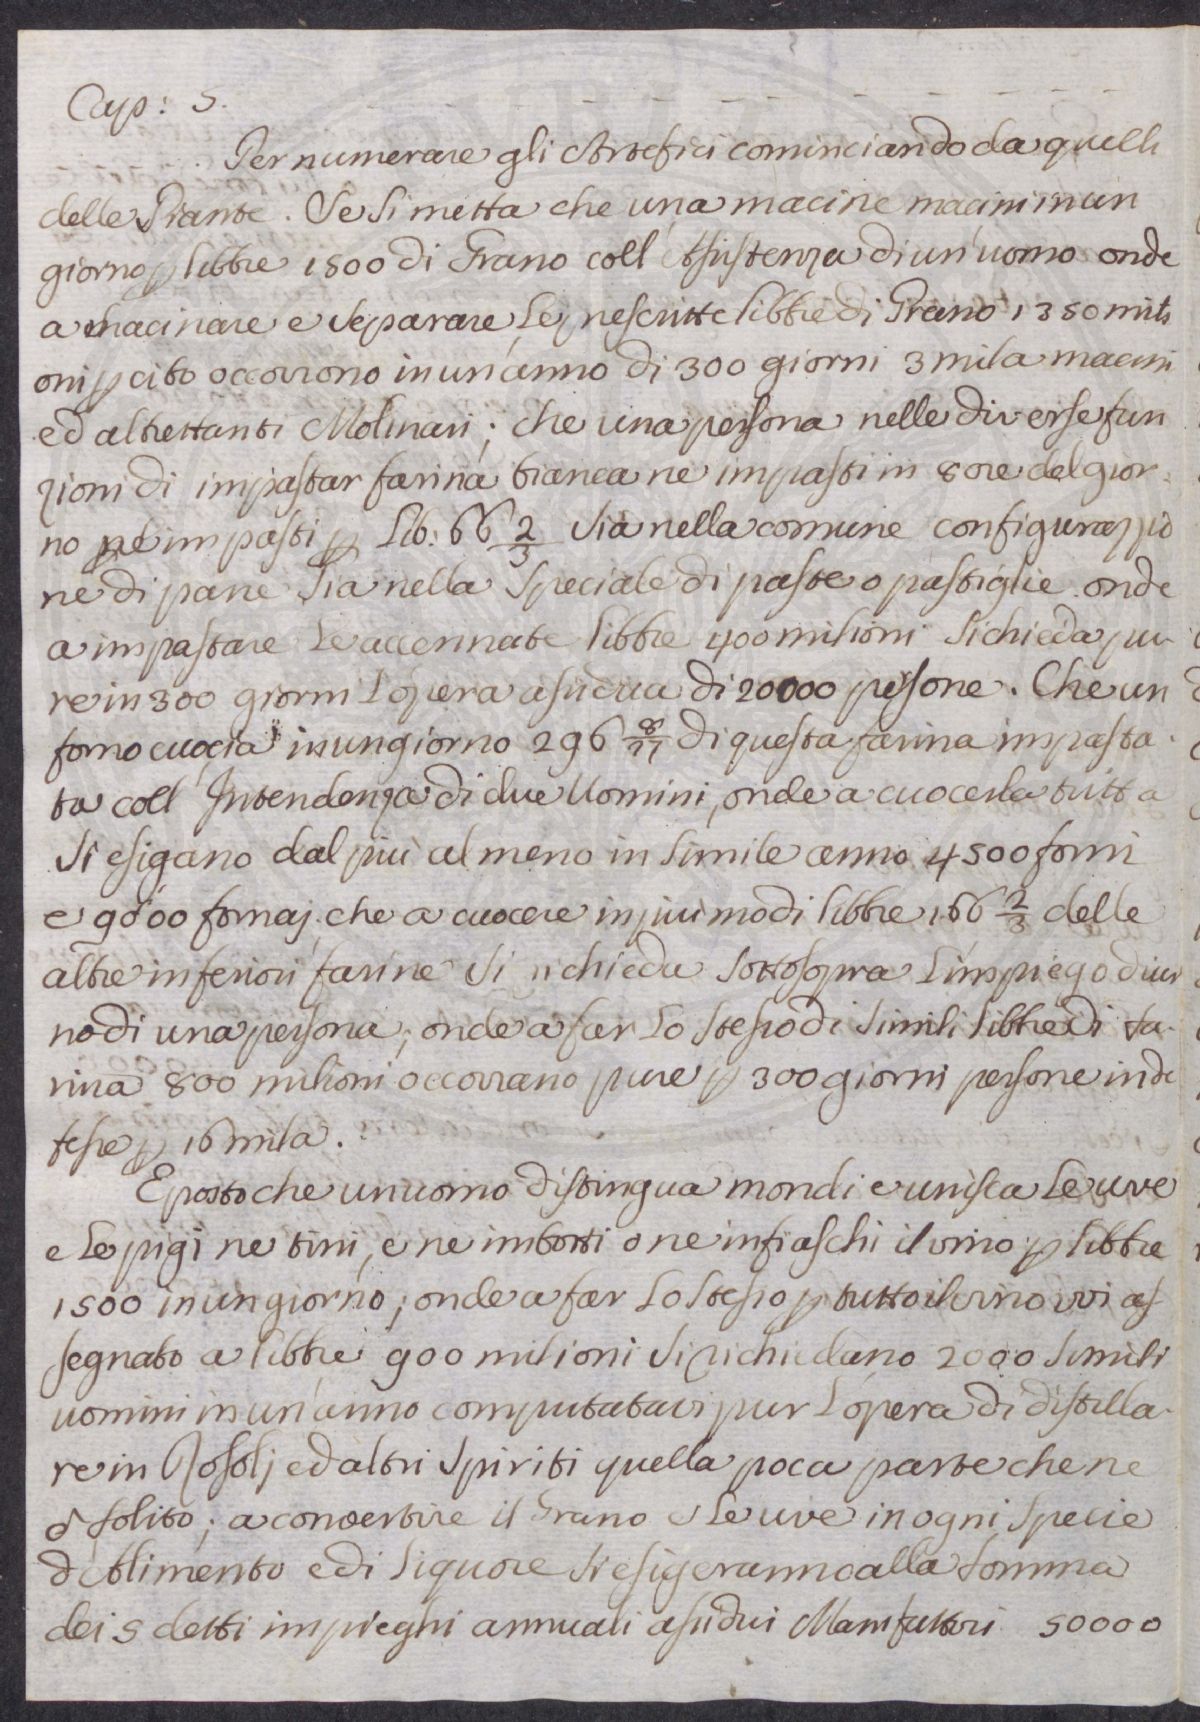 Cap: 5.
Per numerare gli Artefici cominciando da quelli
delle Piante. Se si metta che una macine macini in un
giorno p libbre 1500 di Grano coll Assistenza di un uomo onde
a macinare e separare le prescritte libbre di Grano 1350 mili
oni p cibo occorrono in un'anno di 300 giorni 3 mila macini
ed altrettanti Molinari; che una persona nelle diverse fun
zioni di impastar farina bianca ne impasti in 8 ore del gior-
no ne impasti p Lib: 66 2/3 sia nella comune configurazzio
ne di pane sia nella speciale di paste o pastiglie onde
a impastare le accennate libbre 400 milioni si chieda pu-
re in 300 giorni l'opera assidua di 20000 persone. Che un
forno cuocia in un giorno 296 8/27 di questa farina impasta-
ta coll Intendenza di due Uomini, onde a cuocerla tutta
si esigano dal più al meno in simile anno 4500 forni
e 9000 fornaj. che a cuocere in più modi libbre 166 2/3 delle
altre inferiori farine si richieda sottosopra l'impiego diur
no di una persona; onde a far lo stesso di simili libbre di fa-
rina 800 milioni occorrano pure p 300 giorni persone inde
fesse p 16 mila.
E posto che un uomo distingua mondi e unisca le uve
e le pigi ne tini, e ne imbotti o ne infiaschi il vino p libbre
1500 in un giorno; onde a far lo stesso p tutto il vino ivi as
segnato a libbre 900 milioni si richiedano 2000 simili
uomini in un'anno computatavi pur l'opera di distilla-
re in Rosolj ed altri spiriti quella poca parte che ne
è solito; a convertire il Grano e le uve in ogni specie
d'Alimento e di liquore si esigeranno alla somma
dei 5 detti impieghi annuali assidui Manifattori 50000